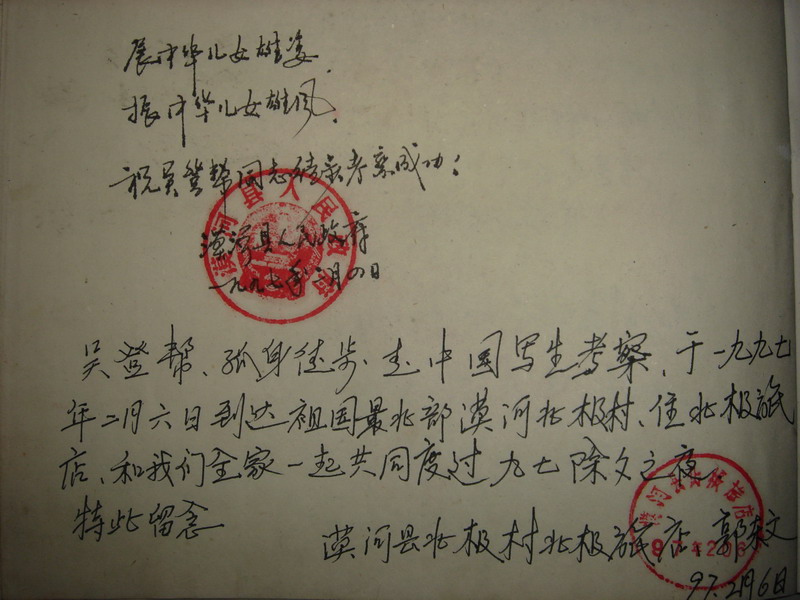 展中华儿女雄姿
振中华儿女雄风.
祝吴登帮同志徒步考察成功!
漠河县人民政府
一九九七年二月四日
漠河县人民政府
吴登帮、孤身徒步走中国写生考察、于一九九七
年二月六日到达祖国最北部漠河北极村、住北极旅
店、和我们全家一起共同度过九七除夕之夜
特此留念
漠河县北极村北极旅店 郭
97.2月6日
旅店